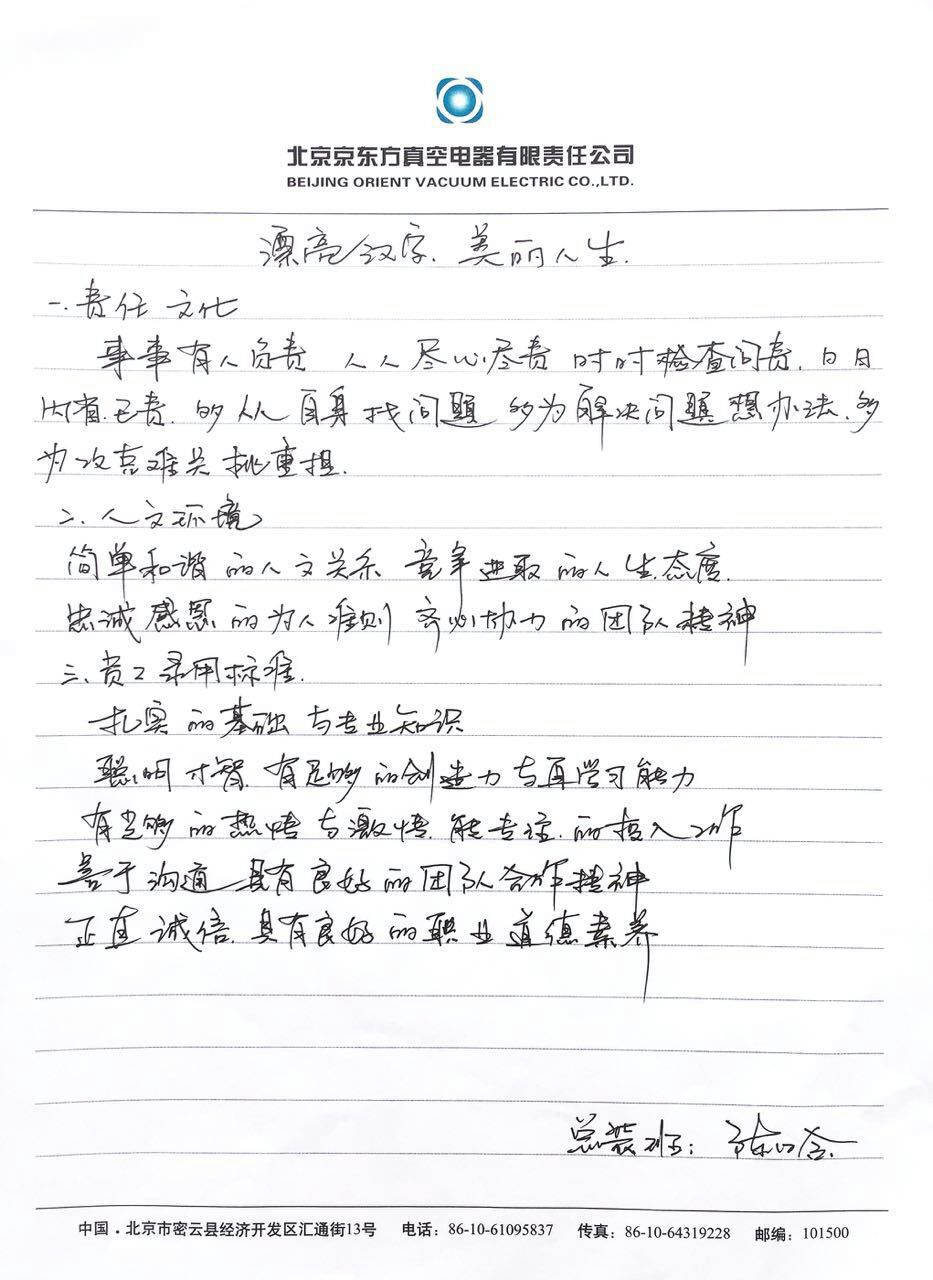 北京京东方真空电器有限责任公司
BEIJING ORIENT VACUUM ELECTRIC CO.,LTD.
漂亮汉字.美丽人生.
一.责任文化
事事有人负责 人人尽心尽责 时时检查问责.日日
内省己责.多从自身找问题 多为解决问题想办法.多
为攻克难关挑重担.
二.人文环境
简单和谐的人文关系 竞争进取的人生态度.
忠诚感恩的为人准则 齐心协力的团队精神
三.员工录用标准.
扎实的基础与专业知识
聪明才智.有足够的创造力与再学习能力
有足够的热情与激情.能专注.的投入工作
善于沟通 具有良好的团队合作精神
正直诚信.具有良好的职业道德素养
总装班:
中国.北京市密云县经济开发区汇通街13号 电话:86-10-61095837 传真:86-10-64319228 邮编:101500